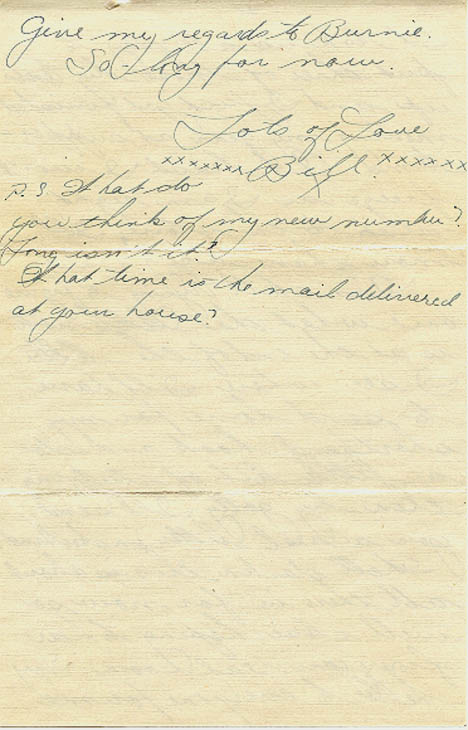 Give my regards to Burnie.
So-long for now.
Lots of Love
xxxxxxx Bill. xxxxxx
P.S. What do
you think of my new number?
Long isn't it?
What time is the mail delivered
at your house?